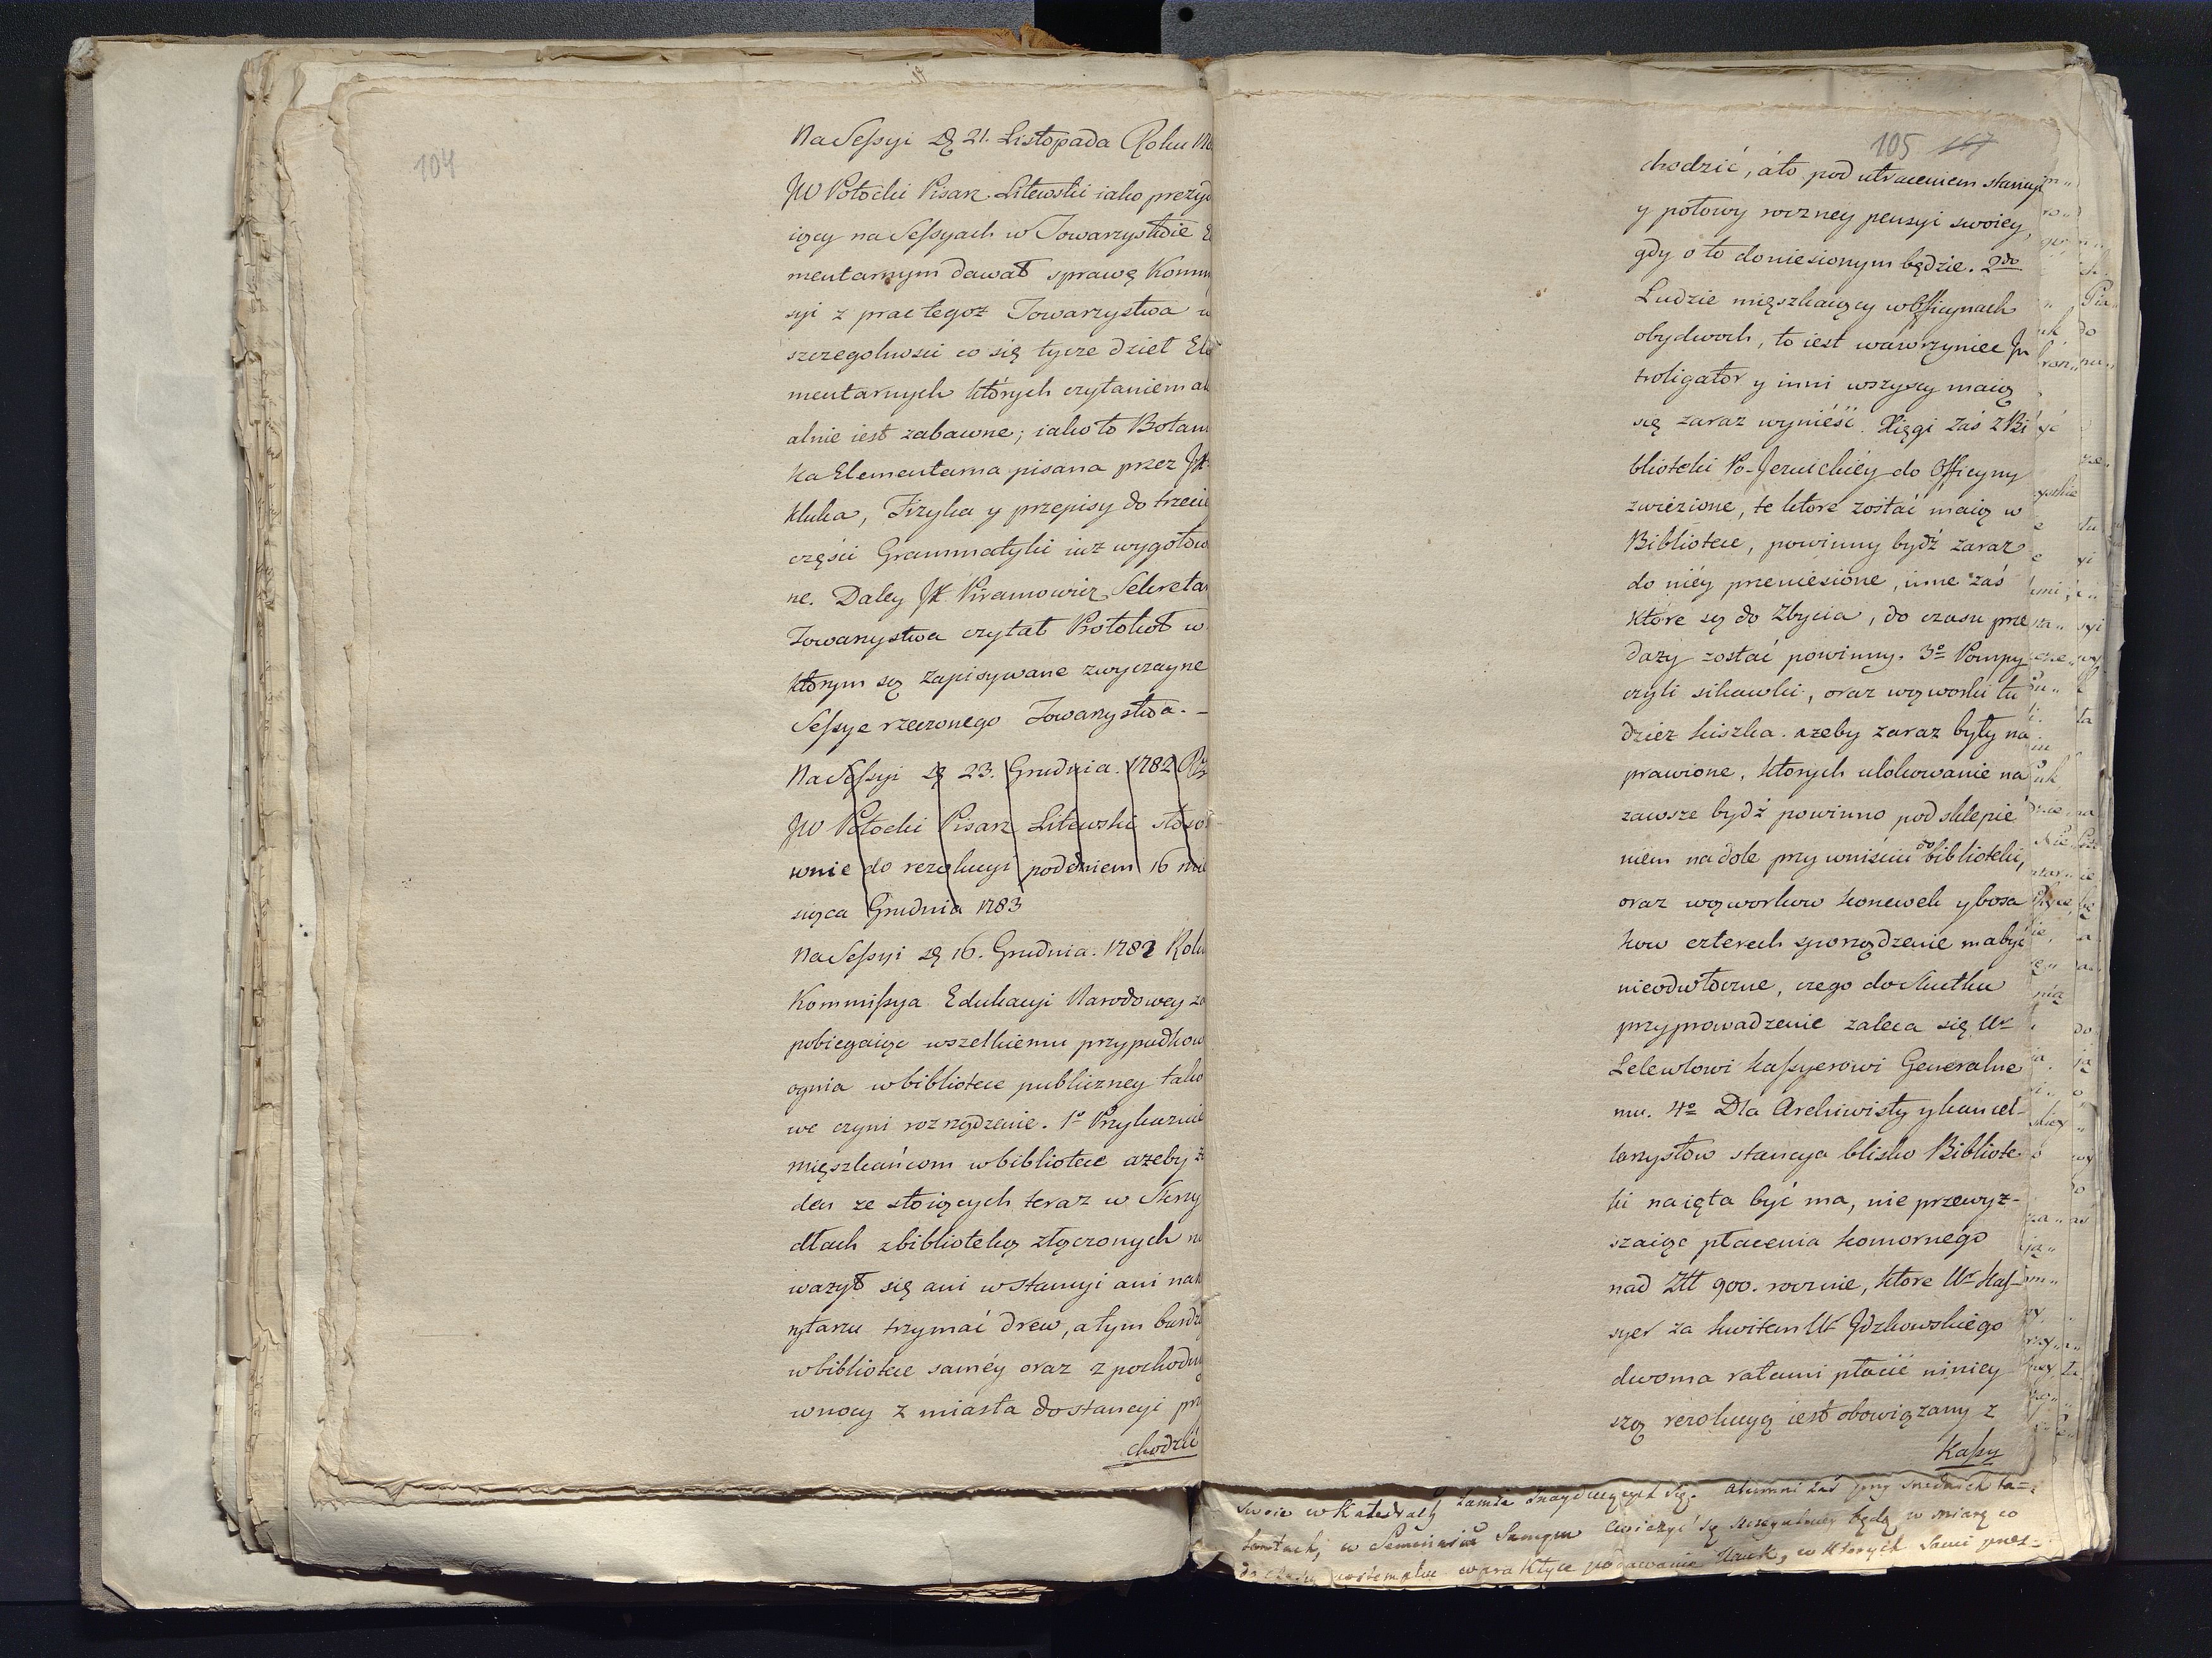 104
Na Seſsyi dą 21. Listopada Roku
JW Potocki Pisarz Litewski iako prezyd
iący na Seſsyach w Towarzystwie E
mentarnym dawał sprawę Komm
syi z prac tegoż Towarzystwa
szczegolnosci co się tycze dzieł Ele
mentarnych których czytaniem
alnie iest zabawne; iako to Botani
ka Elementarna pisana przez JX.
Kluka, Fizyka y przepisy do trzeciey
części Grammatyki iuż wygotow
ne. Daley JX. Piramowicz Sekretar
Towarzystwa czytał Protokoł w
którym są zapisywane zwyczayne
Seſsye rzeczonego Towarzystwa. –
Na Seſsyi dą 23. Grudnia. 1782
JW Potocki Pisarz Litewski stoso
wnie do rezolucyi pod dniem 16 mie
siąca Grudnia 1783
Na Seſsyi dą 16. Grudnia. 1782 Roku
Kommiſsya Edukacyi Narodowey za
pobiegaiąc wszelkiemu przypadkow
ognia w bibliotece publiczney tako
we czyni rozrządzenie. 1º Przykazuie
mięszkańcom w bibliotece ażeby ża
den ze stoiących teraz w Skrzy
dłach z biblioteką złączonych nie
ważył się ani w stancyi ani na ko
rytarzu trzymać drew, a tym bardzi
w bibliotece saméy oraz z pochodni
w nocy z miasta do stancyi prze
chodzić
105 167
chodzić, á to pod utraceniem stancyi
y połowy roczney pensyi swoiey,
gdy o to doniesionym będzie. 2do
Ludzie mięszkaiący w Officynach
obydwoch, to iest wawrzyniec In
troligator y inni wszyscy maią
się zaraz wynieść. Xięgi zaś z Bi
blioteki Po-Jezuickiéy do Officyny
zwiezione, te które zostać maią w
Bibliotece, powinny bydź zaraz
do niéy przeniesione, inne zaś
które są do zbycia, do czasu prze
daży zostać powinny. 3º Pompy
czyli sikawki, oraz wąworki tu
dzież kiszka. ażeby zaraz były na
prawione, których ulokowanie na
zawsze bydź powinno pod sklepie
niem na dole przy wniściu do biblioteki,
oraz wąworkow konewek y bosa
kow czterech sporządzenie ma być
nieodwłoczne, czego do skutku
przyprowadzenie zaleca się Ur
Lelewlowi Kaſsyerowi Generalne
mu. 4º Dla Archiwisty y kancel-
larystow stancya blisko Bibliote
ki naięta być ma, nie przewyż-
szaiąc płacenia komornego
nad Złł 900. rocznie, które Ur Kaſ-
syer za kwitem Ur Idzkowskiego
dwoma ratami płacić niniey
szą rezolucyą iest obowiązany z
Kaſsy
swoie w Katedrach tamże znayduiących się. Alumni zaś przy
w Seminariu Samym ćwiczyć się szczegulniey będą w miarę co
w praktyce podawanie Nauk, w których Sami